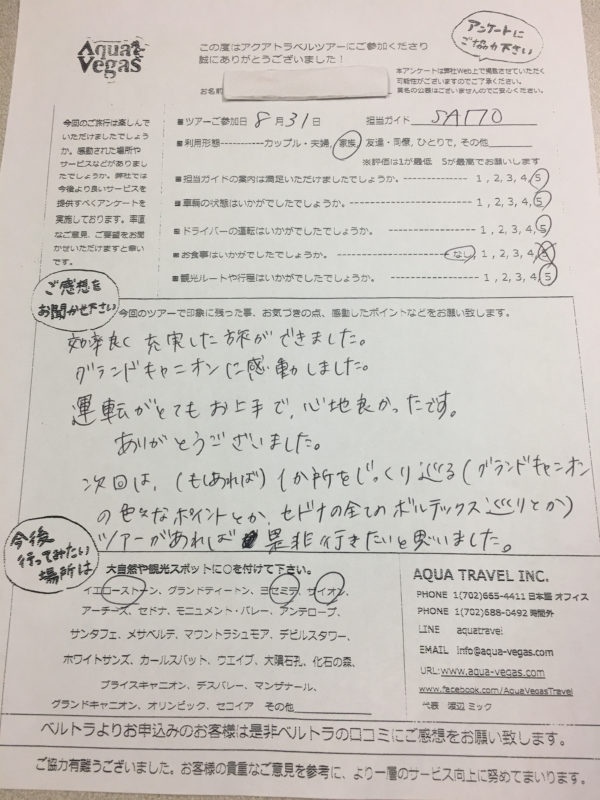 Aqua Vegas
この度はアクアトラベルツアーにご参加くださり
誠にありがとうございました！
アンケートに
ご協力下さい
本アンケートは弊社Web上で掲載させていただく
可能性がございますのでご了承ください。
実名の公表はございませんのでご安心ください。
お名前
今回のご旅行は楽しんで
いただけましたでしょう
か。感動された場所や
サービスなどがありまし
たでしょうか。弊社では
今後より良いサービスを
提供すべくアンケートを
実施しております。率直
なご意見、ご要望をお聞
かせいただけますと幸い
です。
■ツアーご参加日 8月31日 担当ガイド SAITO
■利用形態------------カップル・夫婦, 家族, 友達・同僚, ひとりで, その他
※評価は1が最低 5が最高でお願いします
■担当ガイドの案内は満足いただけましたでしょうか。 1, 2, 3, 4, 5
■車輌の状態はいかがでしたでしょうか。 1, 2, 3, 4, 5
■ドライバーの運転はいかがでしたでしょうか。 1, 2, 3, 4, 5
■お食事はいかがでしたでしょうか。 なし, 1, 2, 3, 4, 5
■観光ルートや行程はいかがでしたでしょうか。 1, 2, 3, 4, 5
ご感想を
お聞かせ下さい
今回のツアーで印象に残った事、お気づきの点、感動したポイントなどをお願い致します。
効率良く充実した旅ができました。
グランドキャニオンに感動しました。
運転がとてもお上手で、心地良かったです。
ありがとうございました。
次回は、(もしあれば)1か所をじっくり巡る(グランドキャニオン
の色々なポイントとか、セドナの全てのボルテックス巡りとか)
ツアーがあれば是非行きたいと思いました。
今後
行ってみたい
場所は
大自然や観光スポットに○を付けて下さい。
イエローストーン、グランドティートン、ヨセミテ、ザイオン、
アーチーズ、セドナ、モニュメント・バレー、アンテロープ、
サンタフェ、メサベルデ、マウントラシュモア、デビルスタワー、
ホワイトサンズ、カールスバット、ウエイブ、大隕石孔、化石の森、
ブライスキャニオン、デスバレー、マンザナール、
グランドキャニオン、オリンピック、セコイア その他
AQUA TRAVEL INC.
PHONE 1(702)665-4411 日本語 オフィス
PHONE 1(702)688-0492 時間外
LINE aquatravel
EMAIL info@aqua-vegas.com
URL:www.aqua-vegas.com
www.facebook.com/AquaVegasTravel
代表 渡辺 ミック
ベルトラよりお申込みのお客様は是非ベルトラの口コミにご感想をお願い致します。
ご協力有難うございました。お客様の貴重なご意見を参考に、より一層のサービス向上に努めてまいります。